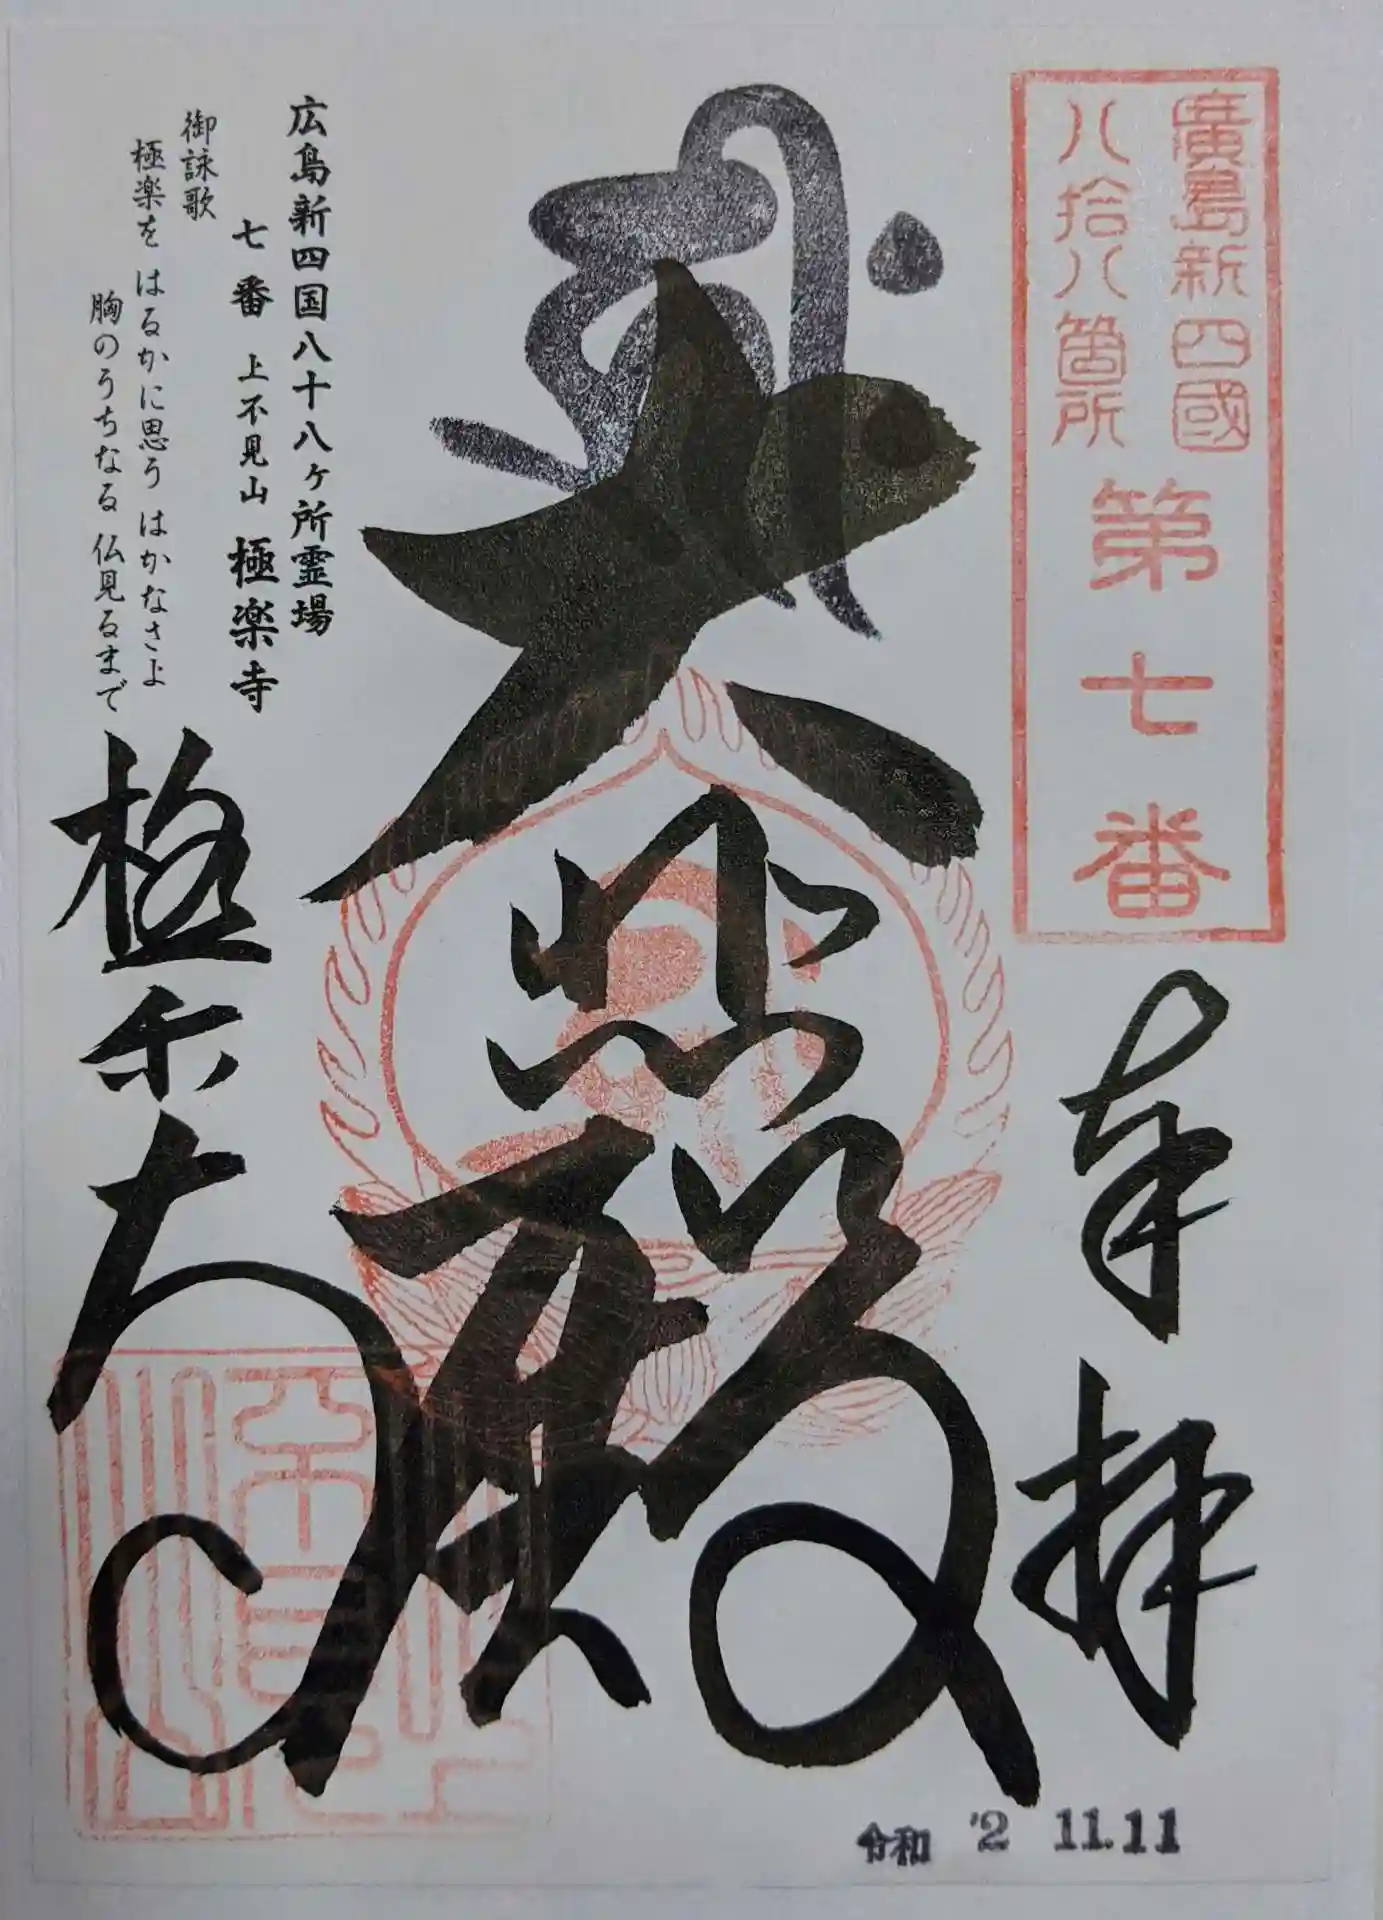 廣島新四國
八拾八箇所
第七番
奉拝
大悲殿
広島新四国八十八ヶ所霊場
七番 上不見山 極楽寺
御詠歌
極楽を はるかに思う はかなさよ
胸のうちなる 仏見るまで
極楽寺
令和 '2 11.11